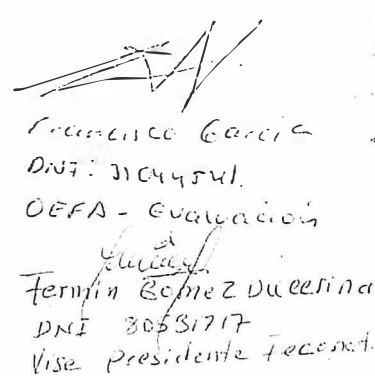 Francisco Garcia
DNI: 31044541.
OEFA - Evaluación
Fermin Gomez Ducerina
DNI 80531717
Vise presidente Feconat.